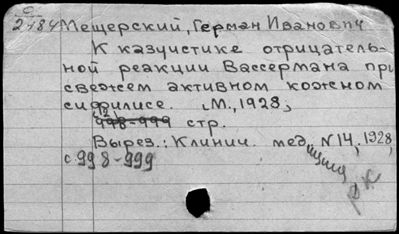 С
2484 Мещерский, Герман Иванович
К казуистике отрицатель-
ной реакции Вассермана при
свежем активном кожном
сифилисе. М., 1928,
(2)
998-999 стр.
Вырез.: Клинич. медицина, N14, 1928,
с 998-999
РК